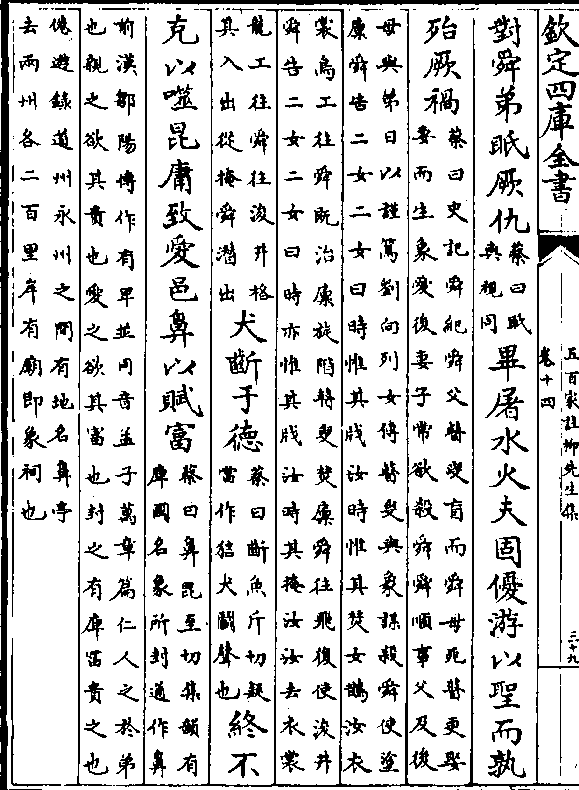 欽定四庫全書
五百家註柳先生集
卷十四
三十九
對舜弟眂厥仇
蔡曰眂
與視同
畢屠水火夫固優游以聖而孰
殆厥禍
蔡曰史記舜紀舜父瞽叟盲而舜母死瞽更娶
妻而生象愛後妻子常欲殺舜舜順事父及後
母與弟日以謹篤劉向列女傳瞽叟與象謀殺舜使塗
廩舜告二女二女曰時惟其戕汝時惟其焚女鵲汝衣
裳鳥工往舜既治廩旋階瞽叟焚廩舜往飛復使浚井
舜告二女二女曰時亦惟其戕汝時其掩汝汝去衣裳
龍工往舜往浚井格
其入出從掩舜潛出
犬斷于德
蔡曰斷魚斤切疑
當作狺犬鬭聲也
終不
克以噬昆庸致愛邑鼻以賦富
蔡曰鼻毗至切集韻有
庳國名象所封通作鼻
前漢鄒陽傳作有卑並同音孟子萬章篇仁人之於弟
也親之欲其貴也愛之欲其富也封之有庳富貴之也
倦遊錄道州永州之間有地名鼻亭
去兩州各二百里岸有廟即象祠也